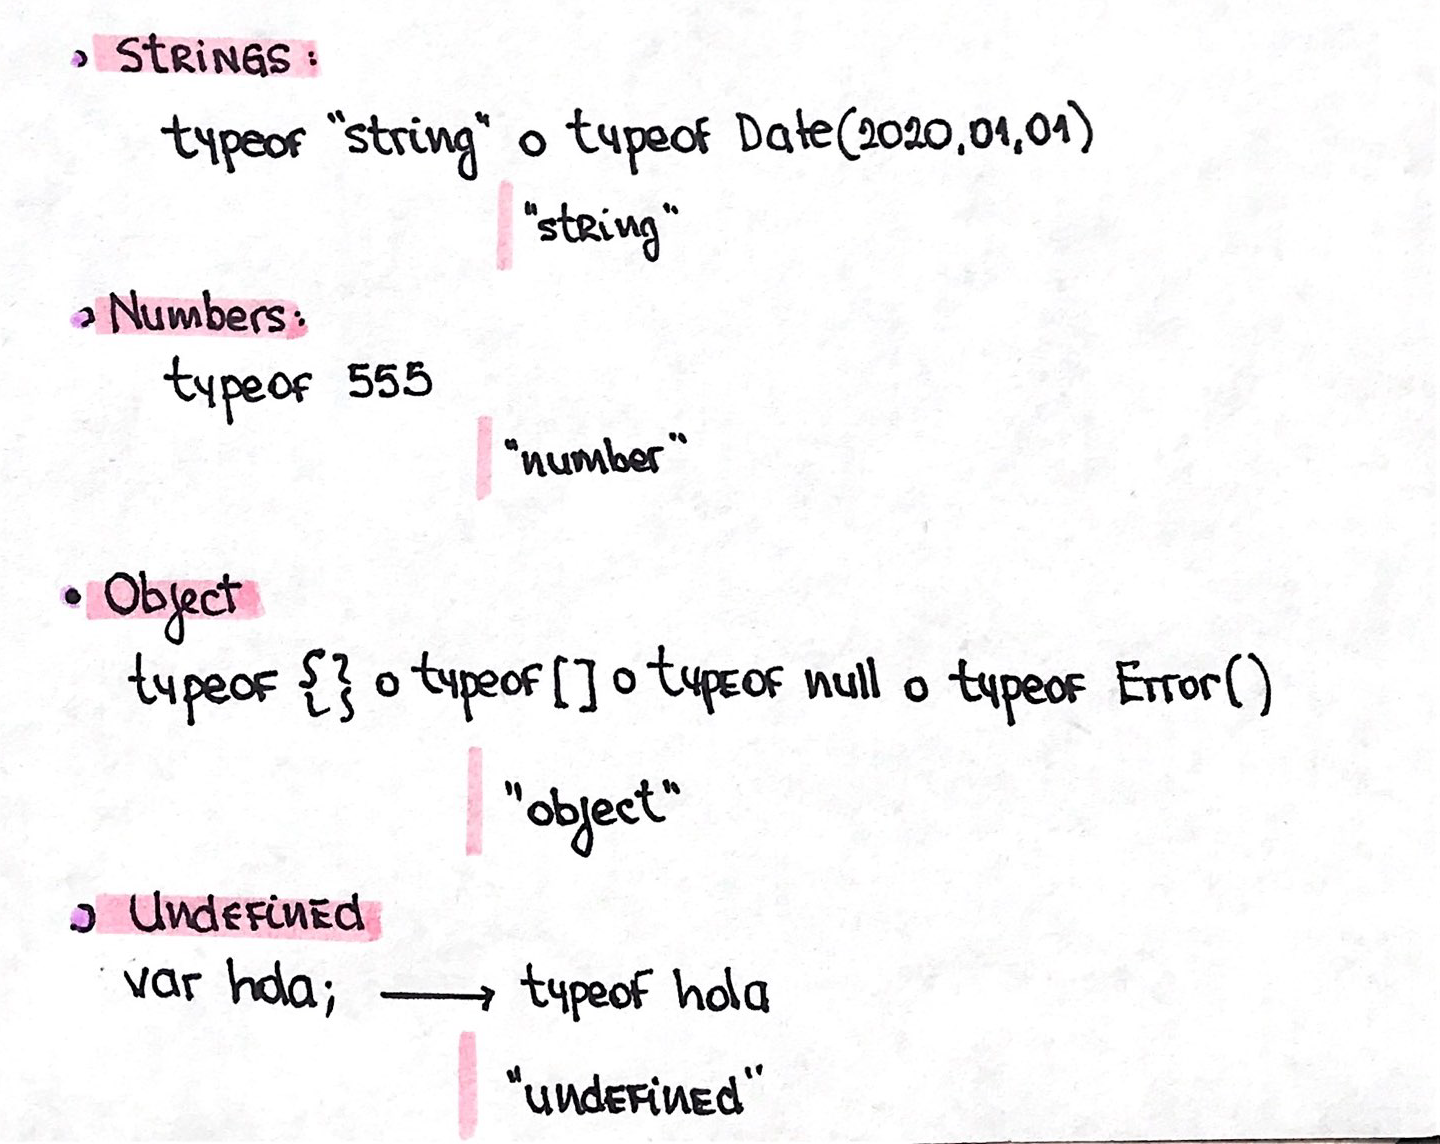 STRINGS:
typeof "string" o typeof Date(2020,01,01)
"string"
Numbers:
typeof 555
"number"
Object
typeof {} o typeof [] o typeof null o typeof Error()
"object"
Undefined
var hola; → typeof hola
"undefined"